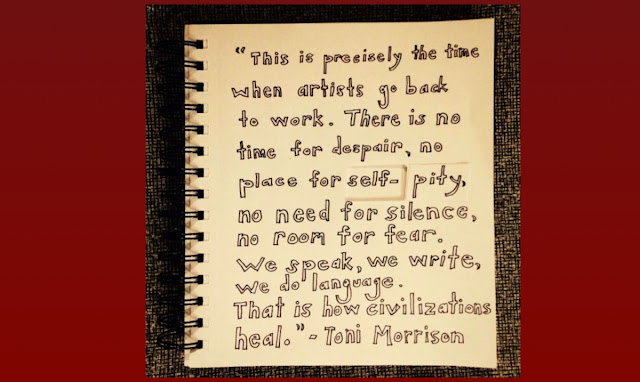 "This is precisely the time
when artists go back
to work. There is no
time for despair, no
place for self- pity,
no need for silence,
no room for fear.
We speak, we write,
we do language.
That is how civilizations
heal." - Toni Morrison